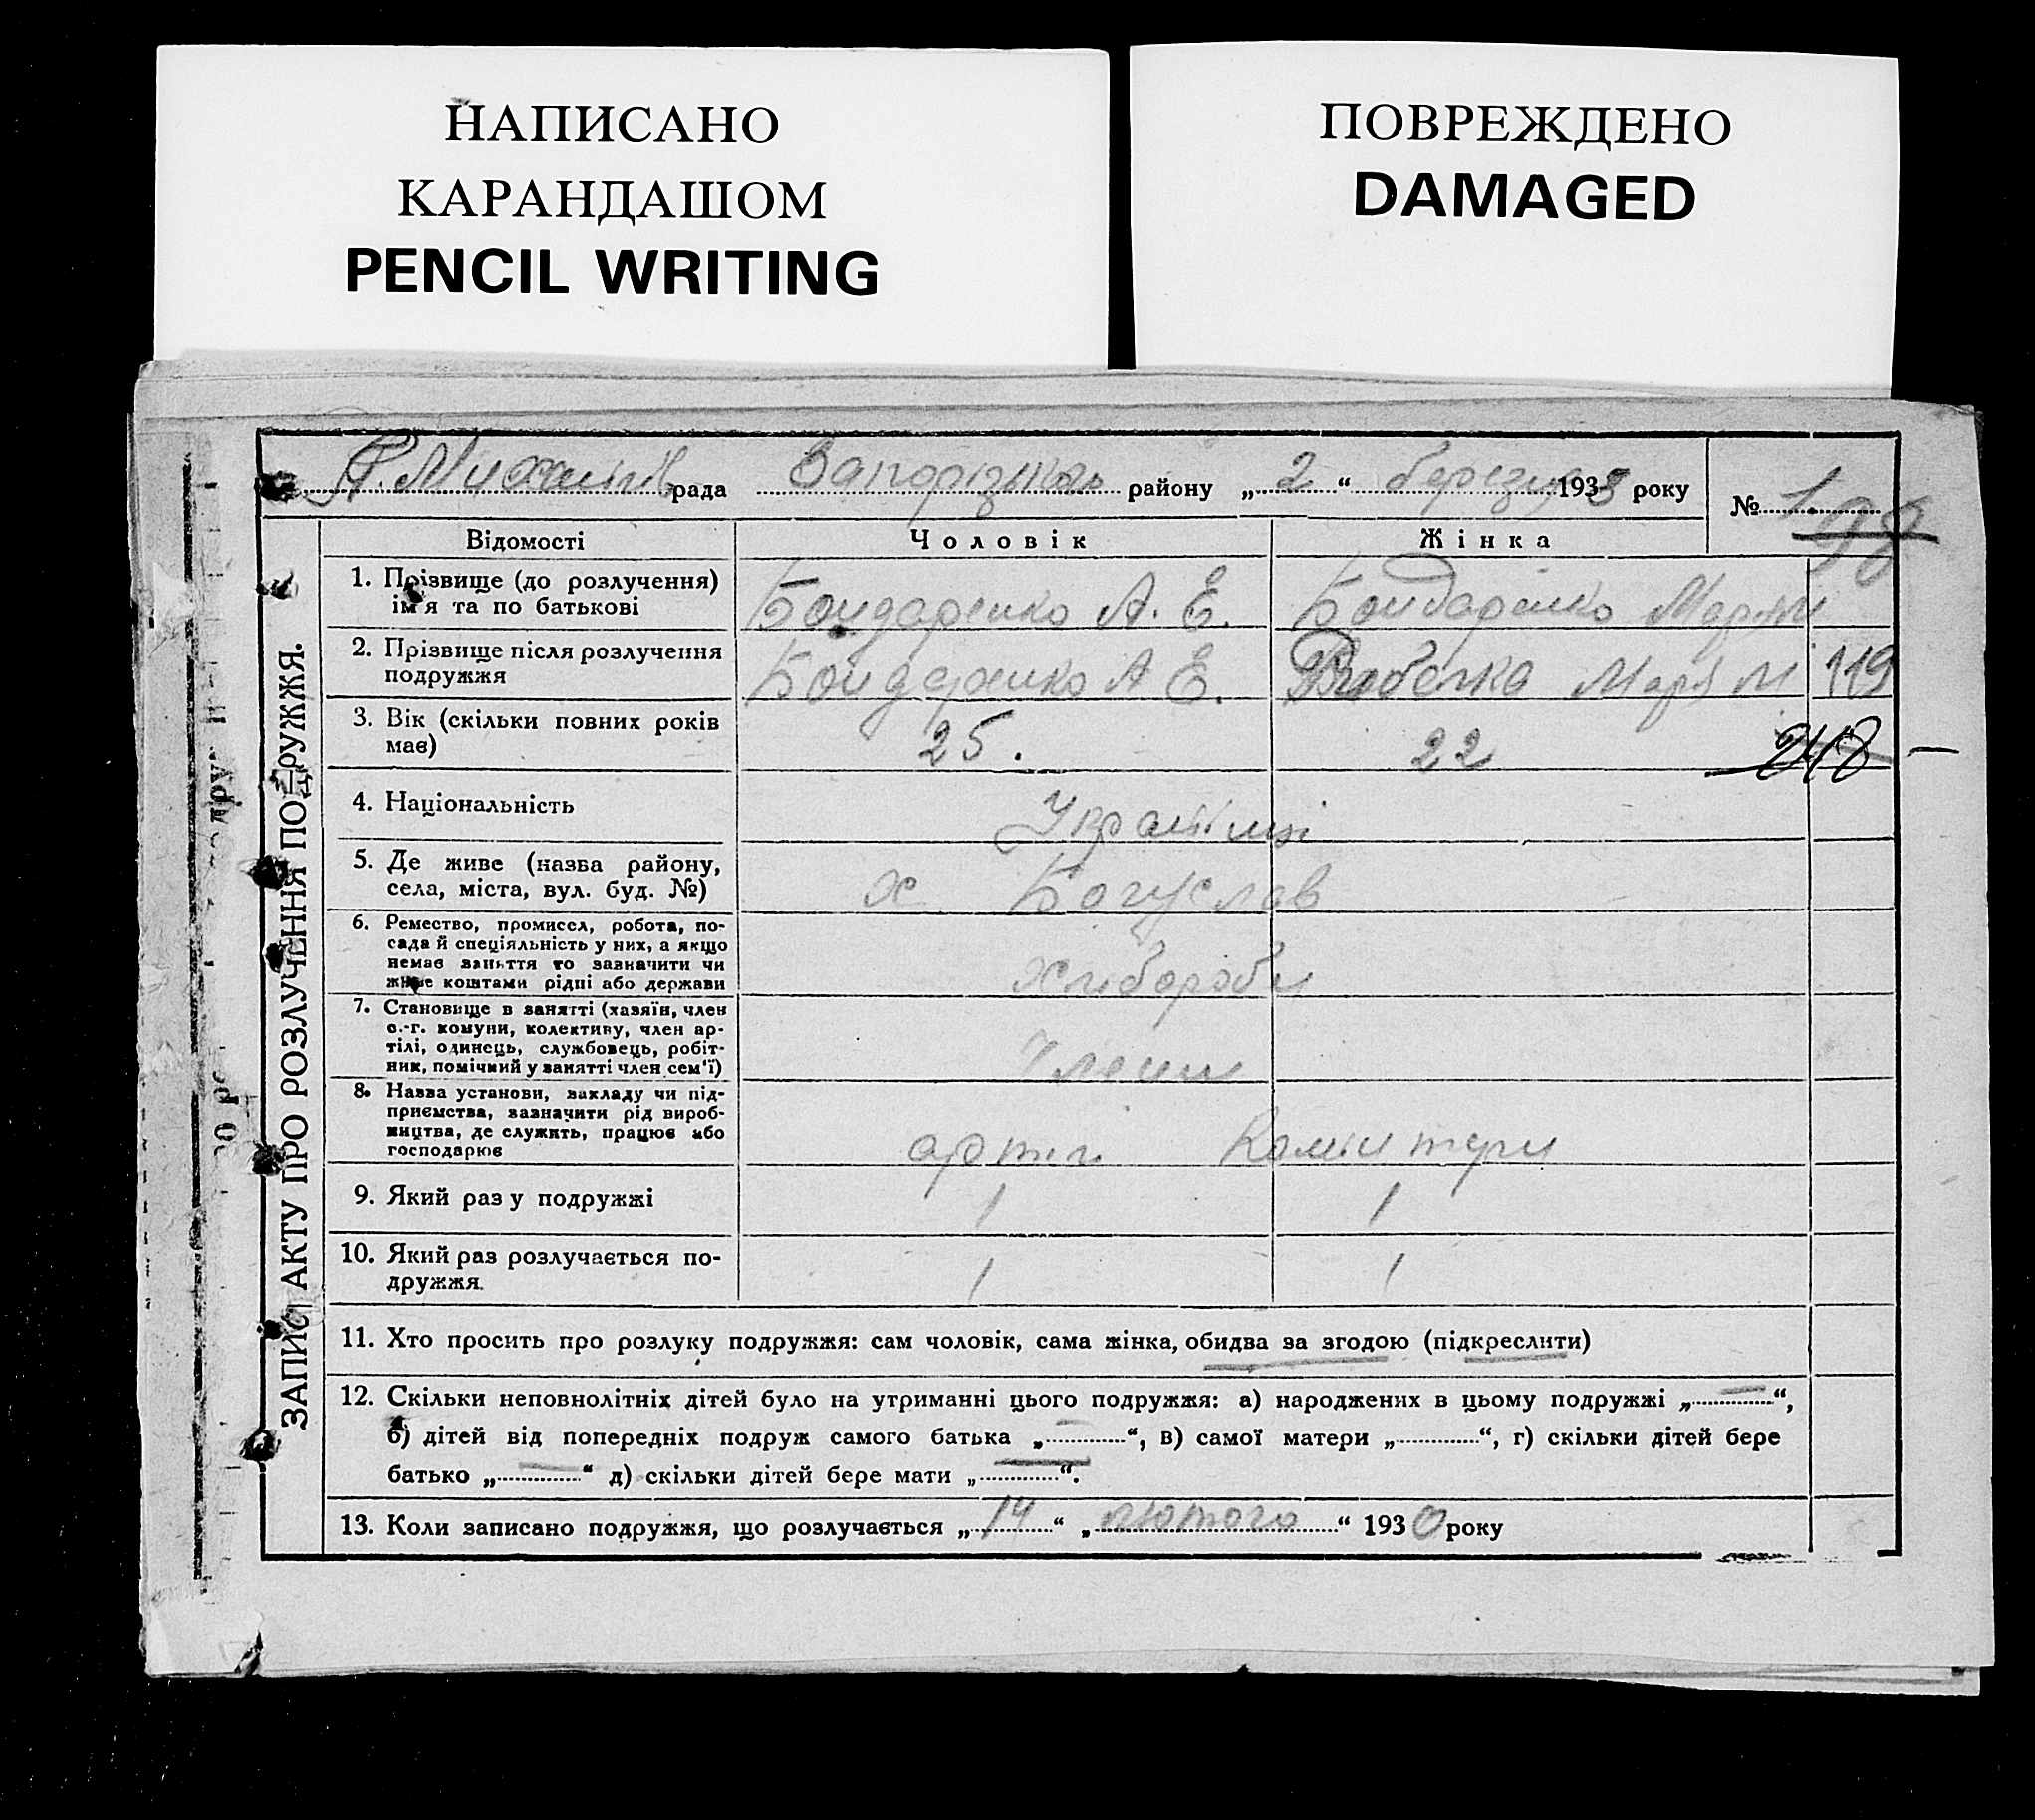 НАПИСАНО
КАРАНДАШОМ
PENCIL WRITING
ПОВРЕЖДЕНО
DAMAGED
рада району „ 2 “ 1933 року
№ 1
ЗАПИС АКТУ ПРО РОЗЛУЧЕННЯ ПОДРУЖЖЯ.
Відомості Чоловік Жінка
1. Прізвище (до розлучення) ім'я та по батькові Бондаренко А. Е. Бондаренко
2. Прізвище після розлучення подружжя Бондаренко А Е. 119
3. Вік (скільки повних років має) 25. 22 248
4. Національність Українці
5. Де живе (назва району, села, міста, вул. буд. №) х Богуслав
6. Ремество, промисел, робота, посада й спеціяльність у них, а якщо немає заняття то зазначити чи живе коштами рідні або держави хлібороби
7. Становище в занятті (хазяїн, член с.-г. комуни, колективу, член артілі, одинець, службовець, робітник, помічний у занятті член сем'ї) Члени
8. Назва установи, закладу чи підприємства, зазначити рід виробництва, де служить, працює або господарює
9. Який раз у подружжі 1 1
10. Який раз розлучається подружжя. 1 1
11. Хто просить про розлуку подружжя: сам чоловік, сама жінка, обидва за згодою (підкреслити)
12. Скільки неповнолітніх дітей було на утриманні цього подружжя: а) народжених в цьому подружжі „ — “,
б) дітей від попередніх подруж самого батька „ — “, в) самої матери „ “, г) скільки дітей бере
батько „ — “ д) скільки дітей бере мати „ — “.
13. Коли записано подружжя, що розлучається „ 14 “ „ лютого “ 1930 року